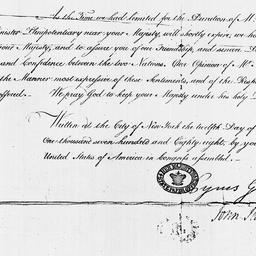 As the Time we had limited for the Duration of M
inister Plenipotentiary near your Majesty will shortly expire, we h
your Majesty, and to assure you of our Friendship, and sincere D
and Confidence between the two Nations. Our Opinion of Mr.
the Manner most expressive of these Sentiments, and of the Resp
offered. We pray God to keep your Majesty under his holy
Written at the City of New York the twelfth Day of
One thousand seven hundred and Eighty eight, by you
United States of America in Congress assembled.
Cyrus G
John